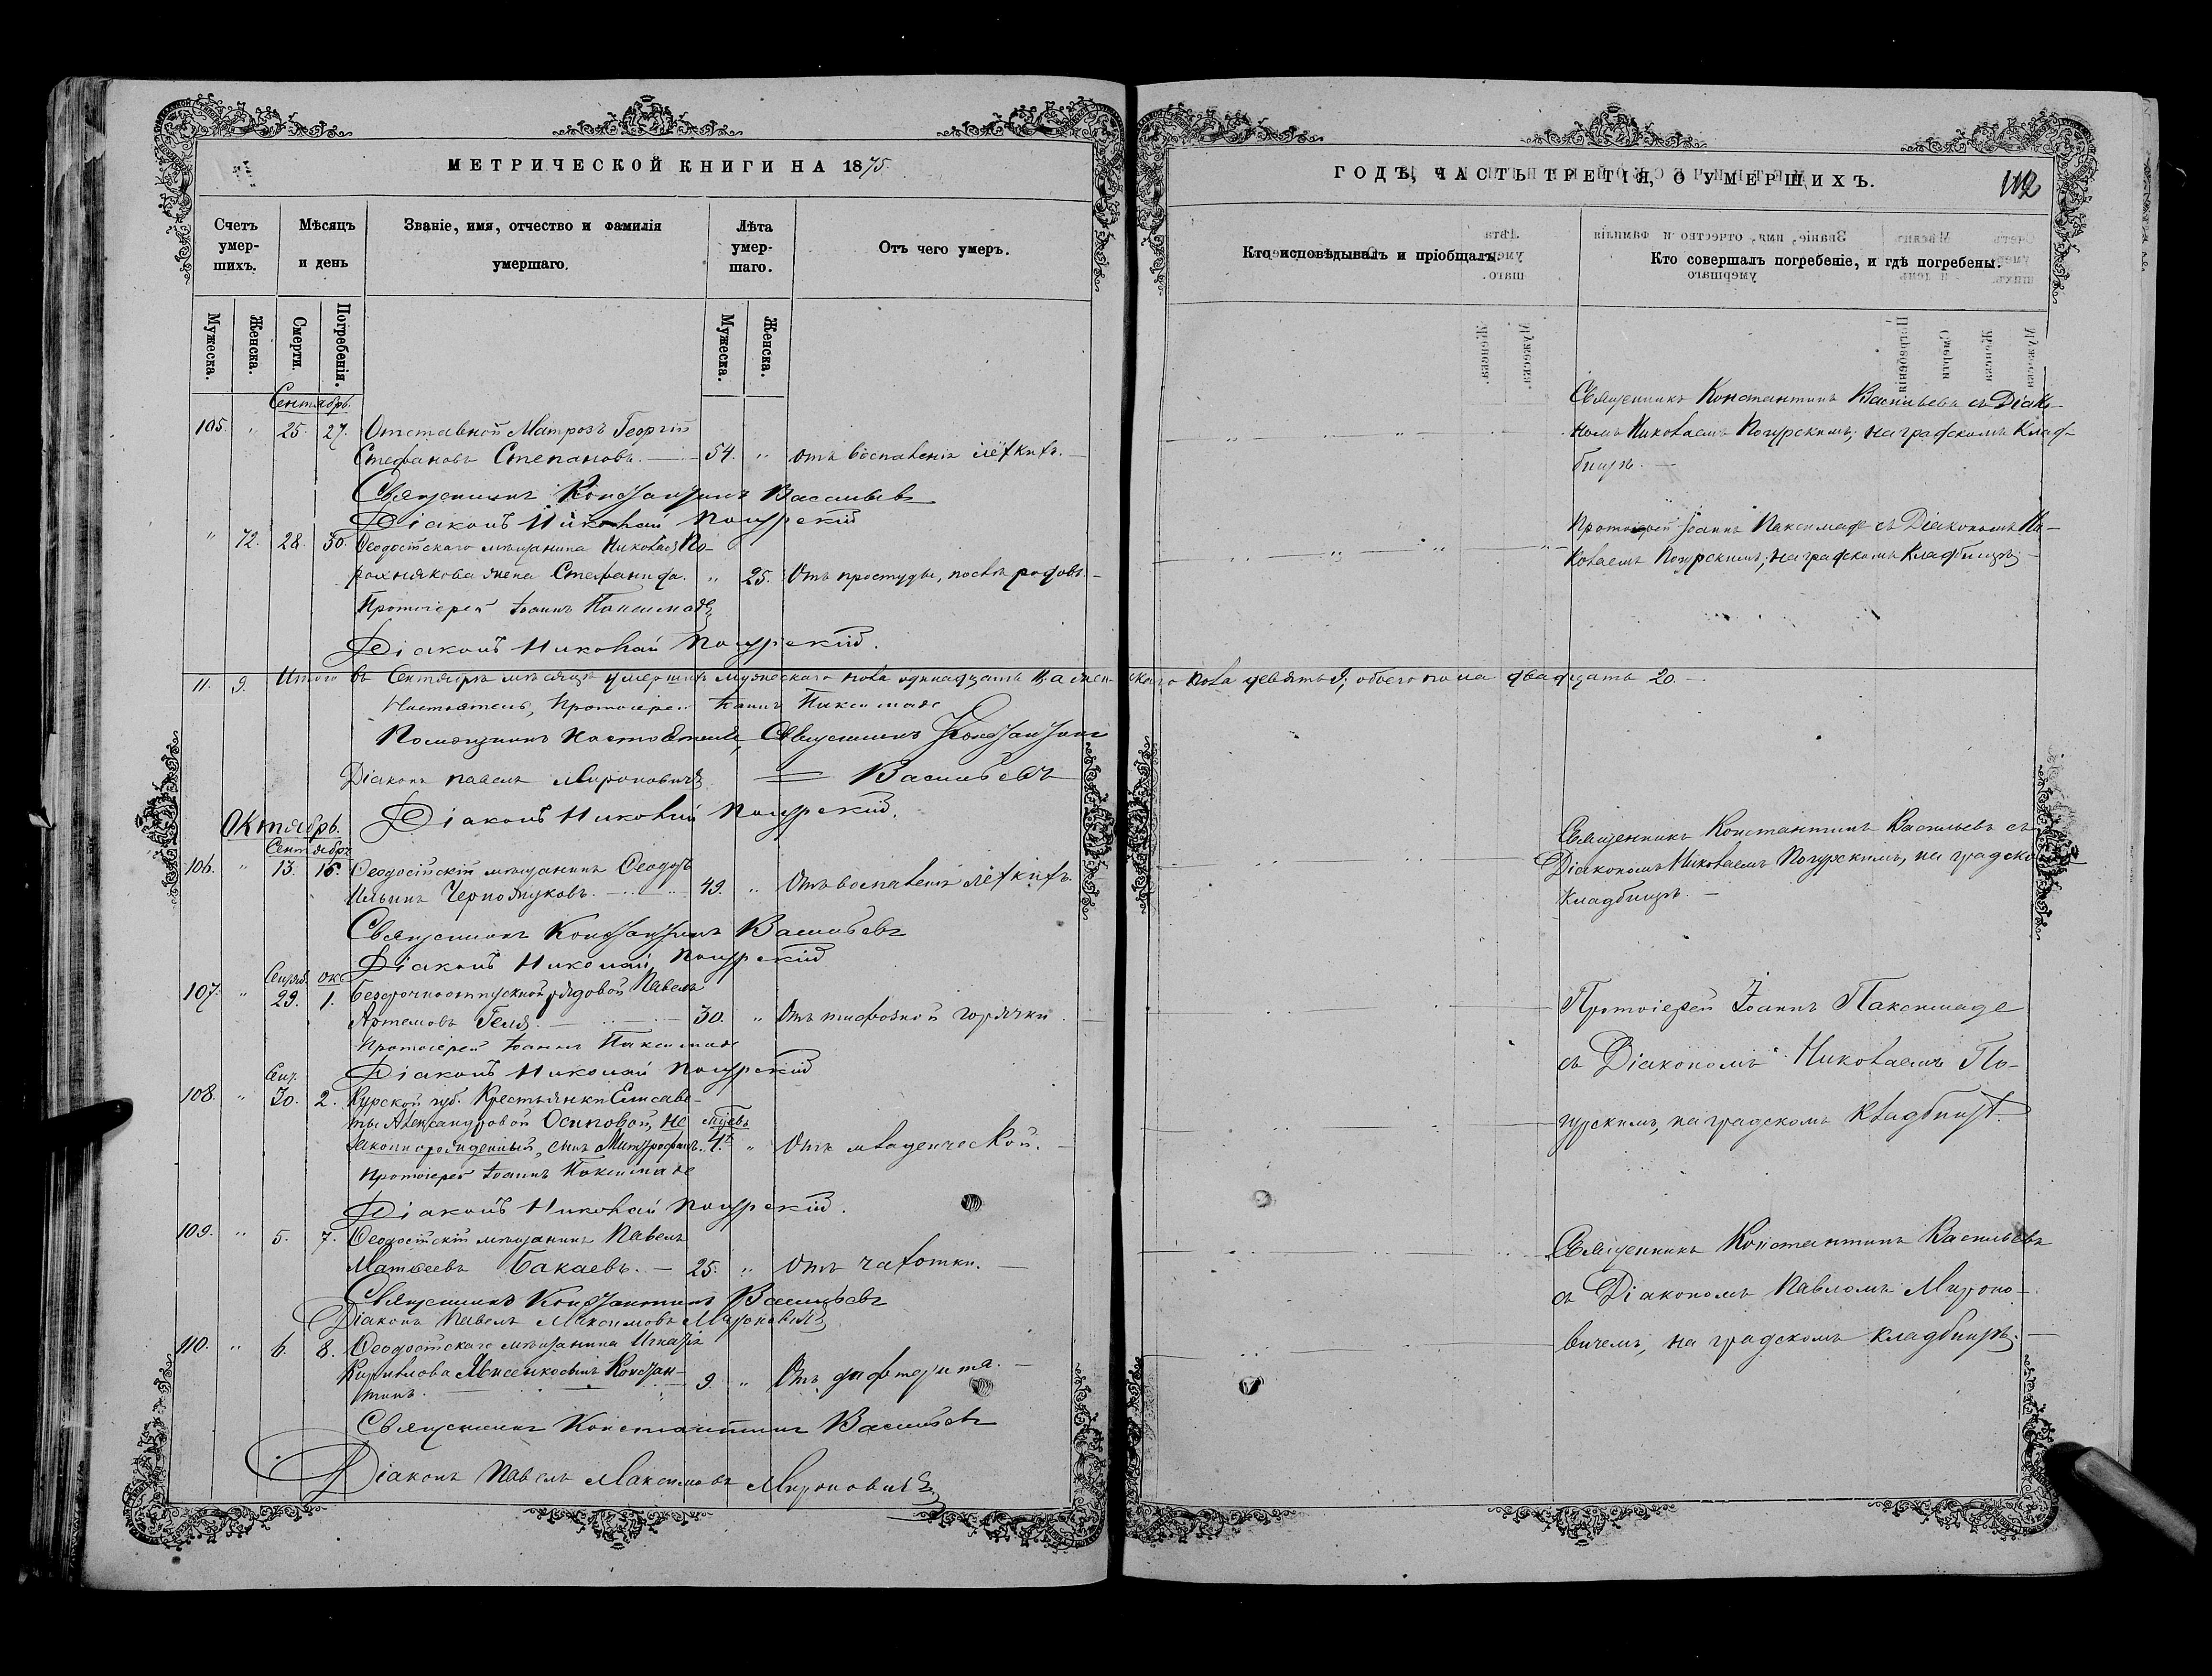 МЕТРИЧЕСКОЙ КНИГИ НА 1875
Счетъ умер-шихъ.
Мѣсяцъ и день
Званіе, имя, отчество и фамилія умершаго.
Лѣта умер-шаго.
Отъ чего умеръ.
Мужеска.
Женска.
Смерти.
Погребенія.
Мужеска.
Женска.
Сентябрь.
105. " 25. 27. Отставной Матрозъ Георгій
Стефановъ Степановъ. 54. " Отъ воспаленія лёхкихъ.
Священникъ Константинъ Васильевъ
Діаконъ Николай Погурскій
" 72. 28. 30. Ѳеодосійскаго мѣщанина Николая По-
рохнякова жена Стефанида. " 25. Отъ простуды, послѣ родовъ.
Протоіерей Іоаннъ Паксимаде
Діаконъ Николай Погурскій.
11. 9. Итого въ Сентябрѣ мѣсяцѣ умершихъ мужескаго пола одинадцать 11. а жен-скаго пола девять 9; обоего пола двадцать 20.
Настоятель, Протоіерей Іоаннъ Паксимаде
Помощникъ Настоятеля, Священникъ Константинъ
Діаконъ Павелъ Мироновичъ Васильевъ
Діаконъ Николай Погурскій.
Октябрь.
Сентябрь
106. " 13. 16. Ѳеодосійскій мѣщанинъ Ѳеодоръ
Ильинъ Черножуковъ. 49. " Отъ воспаленія лёхкихъ.
Священникъ Константинъ Васильевъ
Діаконъ Николай Погурскій
Сентяб. Окт
107. " 29. 1. Безсрочноотпускной рядовой Павелъ
Артемовъ Геля. 30. " Отъ тифозной горячки
Протоіерей Іоаннъ Паксимаде
Діаконъ Николай Погурскій
Сент.
108. " 30. 2. Курской губ. Крестьянки Елисаве-
ты Александровой Осиповой, не мѣсяц.
законнорожденный, сынъ Митрофанъ. 4. " Отъ младенческой.
Протоіерей Іоаннъ Паксимаде
Діаконъ Николай Погурскій.
109. " 5. 7. Ѳеодосійскій мѣщанинъ Павелъ
Матѳеевъ Бакаевъ. 25. " Отъ чахотки.
Священникъ Константинъ Васильевъ
Діаконъ Павелъ Максимовъ Мироновичъ
110. " 6. 8. Ѳеодосійскаго мѣщанина Игнатія
Кирилова сынъ Констан-
тинъ. 9. " Отъ дифтерита.
Священникъ Константинъ Васильевъ
Діаконъ Павелъ Максимовъ Мироновичъ
ГОДЪ, ЧАСТЬ ТРЕТІЯ, О УМЕРШИХЪ.
112
Кто исповѣдывалъ и пріобщалъ.
Кто совершалъ погребеніе, и гдѣ погребены.
Священникъ Константинъ Васильевъ съ Діако-
номъ Николаемъ Погурскимъ, на градскомъ клад-
бищѣ.
Протоіерей Іоаннъ Паксимаде съ Діакономъ Ни-
колаемъ Погурскимъ, на градскомъ кладбищѣ
Священникъ Константинъ Васильевъ съ
Діакономъ Николаемъ Погурскимъ, на градско
кладбищѣ.
Протоіерей Іоаннъ Паксимаде
съ Діакономъ Николаемъ По-
гурскимъ, на градскомъ кладбищѣ.
Священникъ Константинъ Васильевъ
съ Діакономъ Павломъ Мироно-
вичемъ, на градскомъ кладбищѣ.